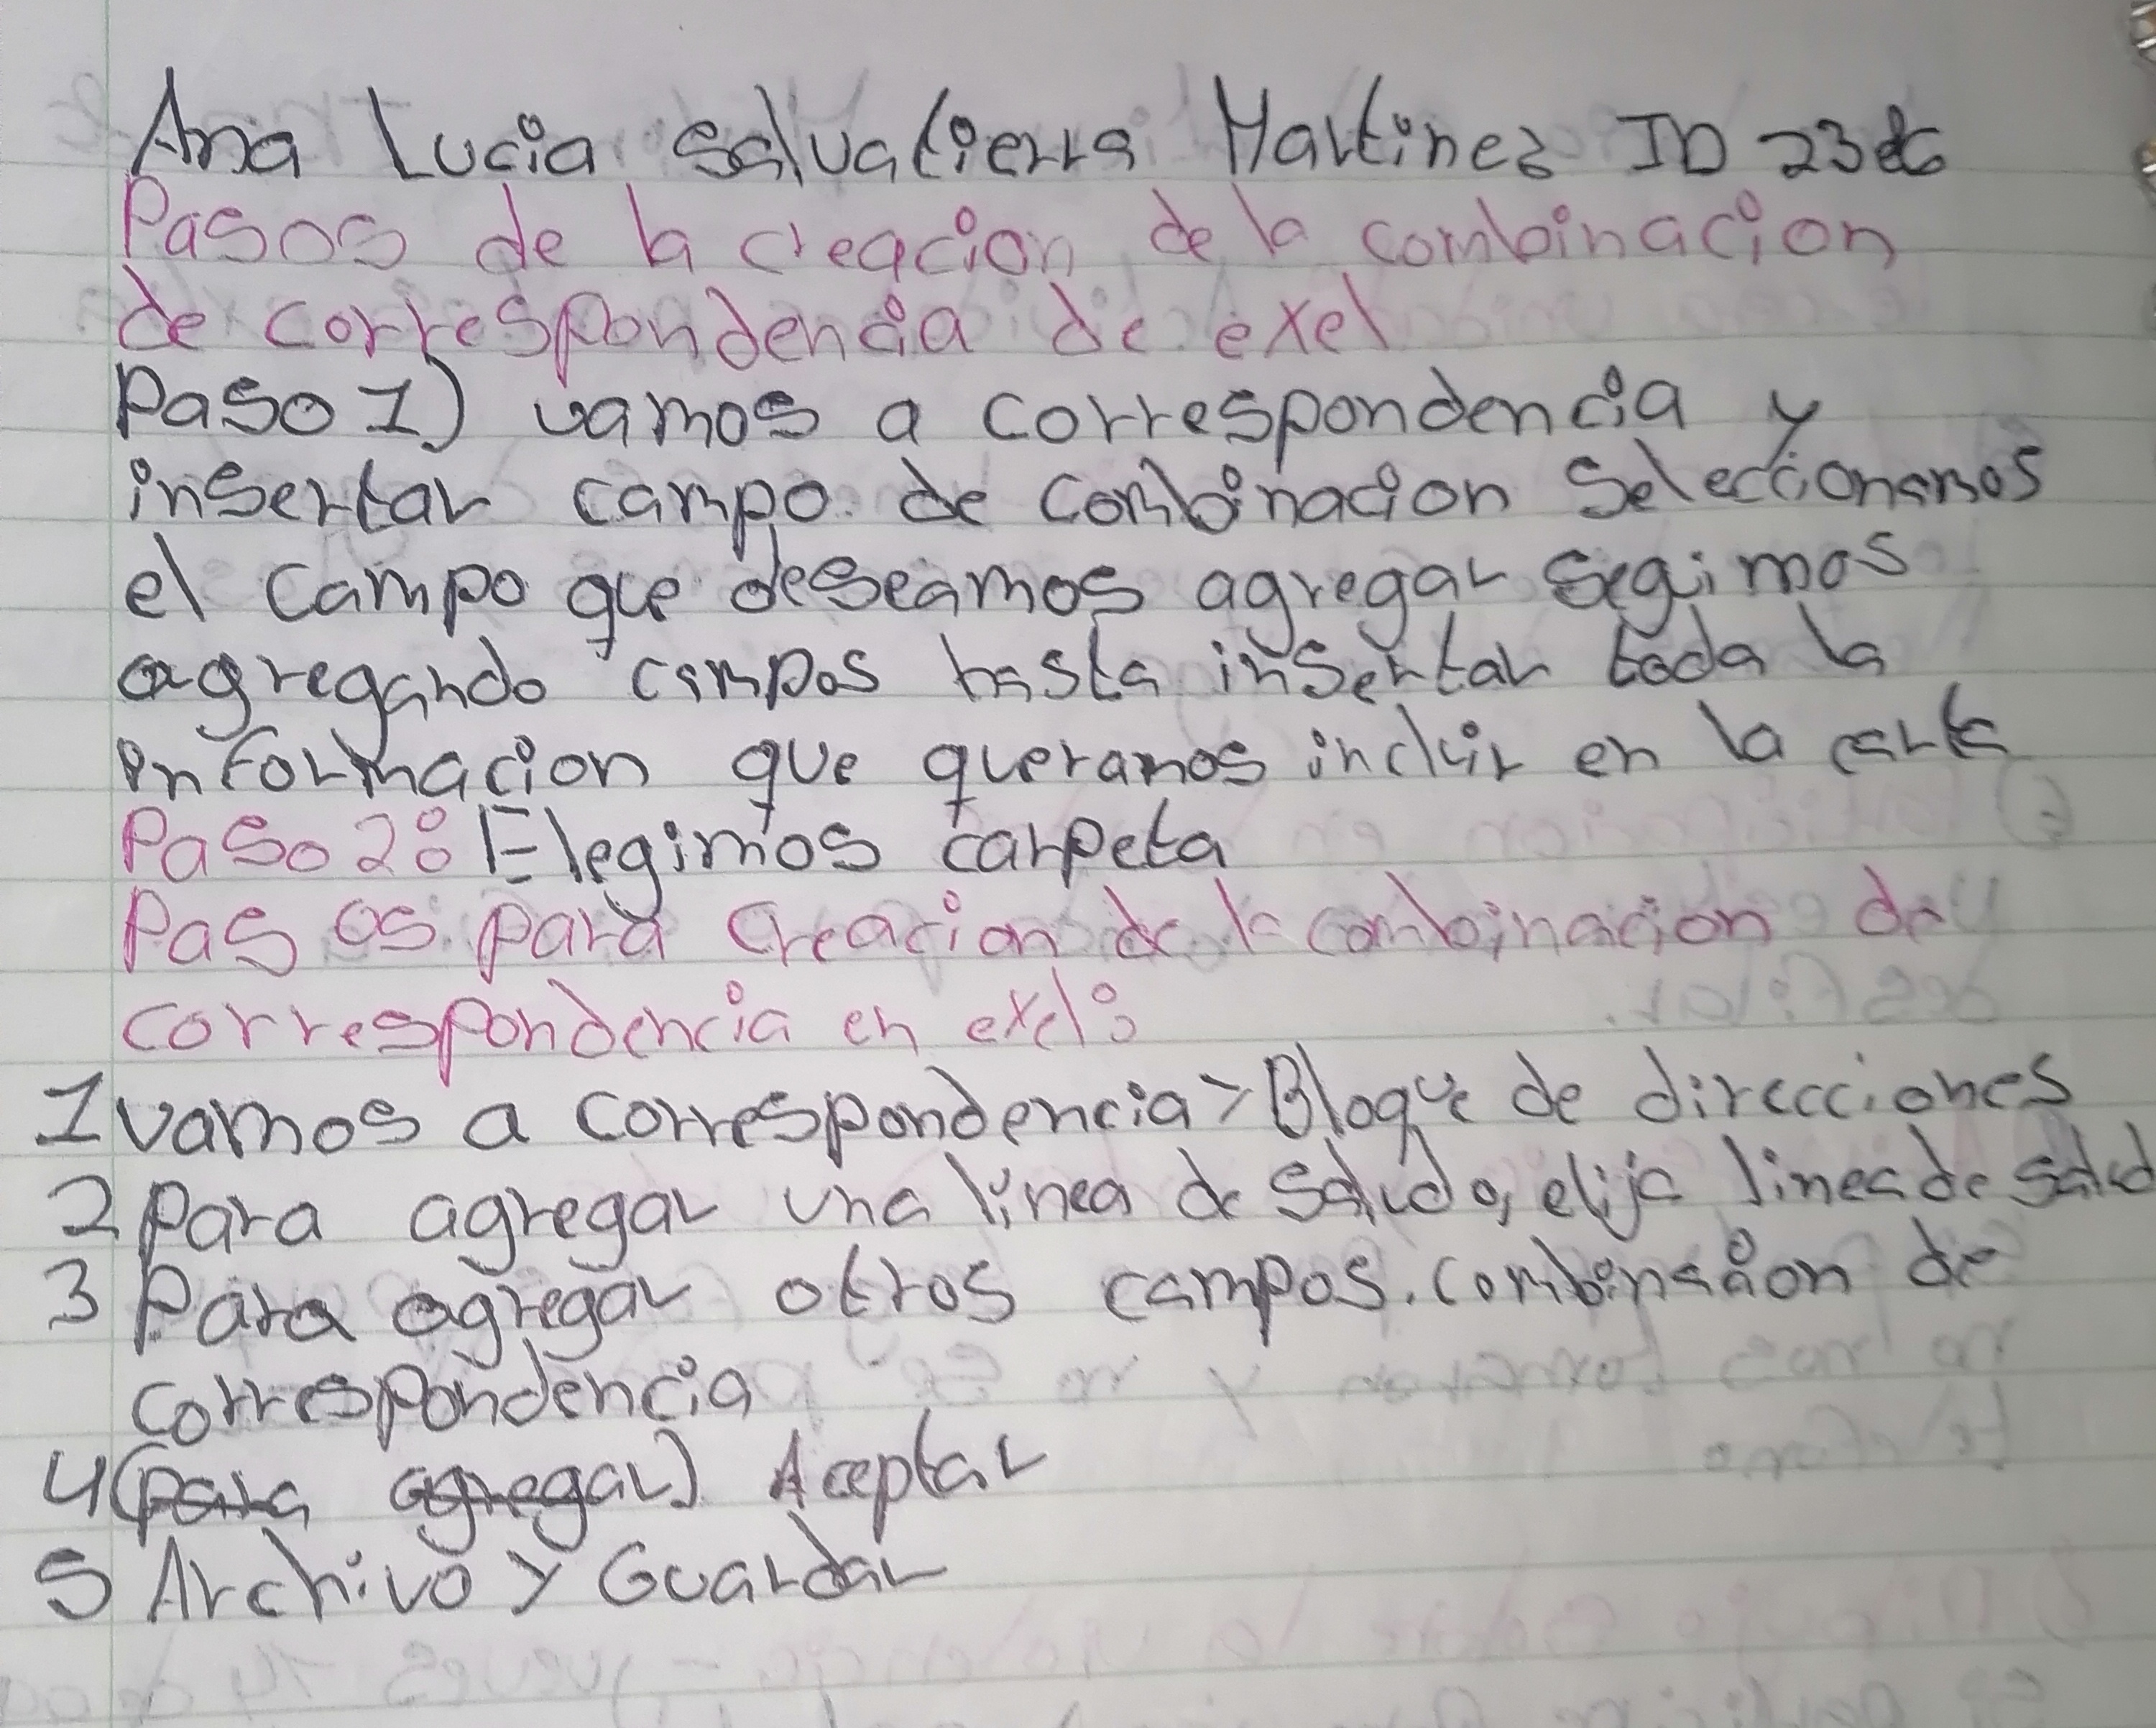 Ana Lucia Salvatierra Martinez ID 23
Pasos de la creacion de la combinacion
de correspondencia de exel
Paso 1) vamos a correspondencia y
insertar campo de combinacion Seleccionamos
el campo que deseamos agregar Segimos
agregando campos hasta insertar toda la
informacion que queramos incluir en la carta
Paso 2: Elegimos carpeta
Pasos para creacion de la combinacion de
correspondencia en exel:
1 vamos a correspondencia > Bloque de direcciones
2 Para agregar una linea de saludo, elija linea de salud
3 Para agregar otros campos. combinacion de
correspondencia
4 (para agregar) Aceptar
5 Archivo y Guardar